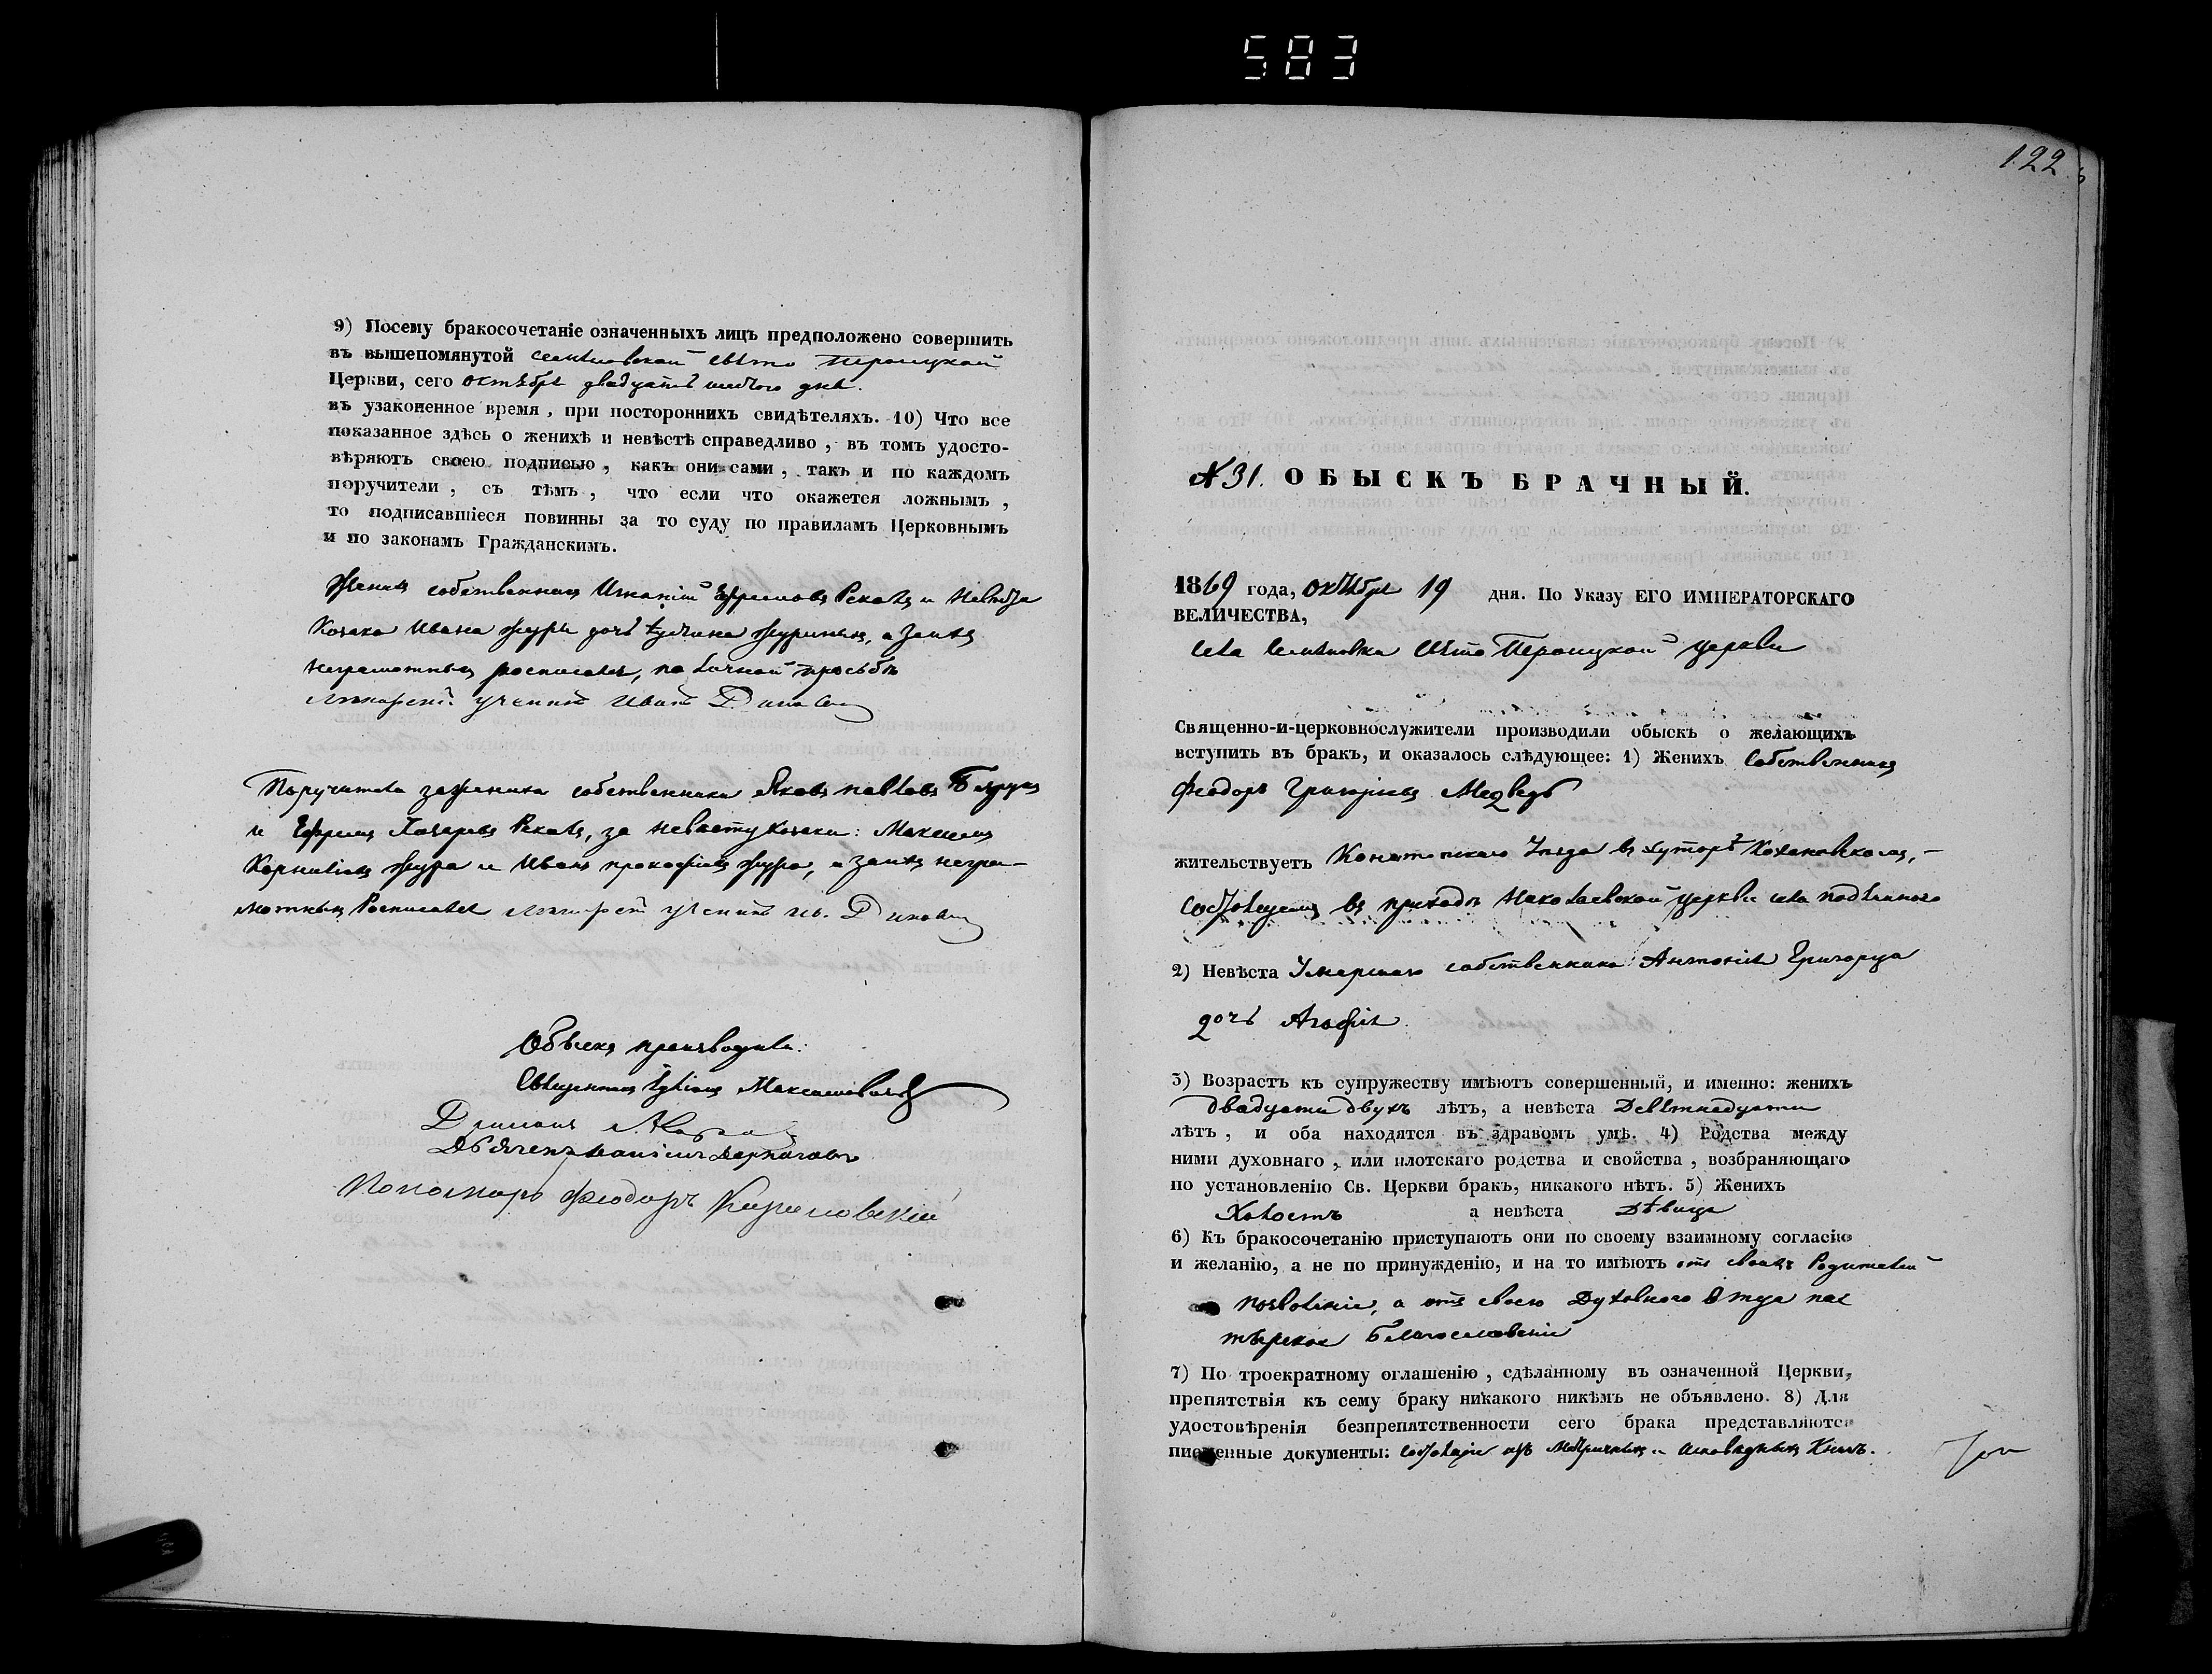 583
9) Посему бракосочетаніе означенныхъ лицъ предположено совершить
въ вышепомянутой Свято Троицкой
Церкви, сего октября двадцать дня.
въ узаконенное время, при постороннихъ свидѣтеляхъ. 10) Что все
показанное здѣсь о женихѣ и невѣстѣ справедливо, въ томъ удосто-
вѣряютъ своею подписью, какъ они сами, такъ и по каждомъ
поручители, съ тѣмъ, что если что окажется ложнымъ,
то подписавшіеся повинны за то суду по правиламъ Церковнымъ
и по законамъ Гражданскимъ.
Женихъ собственникъ Игнатій Ефремовъ Рекатъ и Невѣста
Козака Ивана Журы дочь Журы, а за нихъ
неграмотныхъ росписался, по личной просьбѣ
ученикъ Иванъ
Поручители за жениха собственники Яковъ Павловъ
и Ефремъ Рекатъ, за невѣсту Козаки: Максимъ
Корниліевъ Жура и Иванъ Прокофіевъ Жура, а за нихъ негра-
мотныхъ Росписался ученикъ Ив.
Обыскъ производили:
Священникъ Максимовичъ
Дьячекъ
Пономарь Феодоръ
122
№ 31. ОБЫСКЪ БРАЧНЫЙ.
1869 года, октября 19 дня. По Указу ЕГО ИМПЕРАТОРСКАГО
ВЕЛИЧЕСТВА,
села Свято Троицкой церкви
Священно-и-церковнослужители производили обыскъ о желающихъ
вступить въ бракъ, и оказалось слѣдующее: 1) Женихъ Собственникъ
Феодоръ Григоріевъ Медведь
жительствуетъ Конотопскаго Уѣзда въ хуторѣ Кохановскомъ, –
состоящемъ въ приходѣ Николаевской церкви села Подлипного
2) Невѣста Умершаго собственника Антонія Григорца
дочь Агафія.
3) Возрастъ къ супружеству имѣютъ совершенный, и именно: женихъ
двадцати двухъ лѣтъ, а невѣста Девятнадцати
лѣтъ, и оба находятся въ здравомъ умѣ. 4) Родства между
ними духовнаго, или плотскаго родства и свойства, возбраняющаго
по установленію Св. Церкви бракъ, никакого нѣтъ. 5) Женихъ
Холостъ а невѣста Дѣвица
6) Къ бракосочетанію приступаютъ они по своему взаимному согласію
и желанію, а не по принужденію, и на то имѣютъ отъ своихъ Родителей
позволеніе, а отъ своего Духовнаго Отца пас
тырское Благословеніе
7) По троекратному оглашенію, сдѣланному въ означенной Церкви,
препятствія къ сему браку никакого никѣмъ не объявлено. 8) Для
удостовѣренія безпрепятственности сего брака представляются
письменные документы: изъ Метричныхъ и исповѣдныхъ Книгъ.